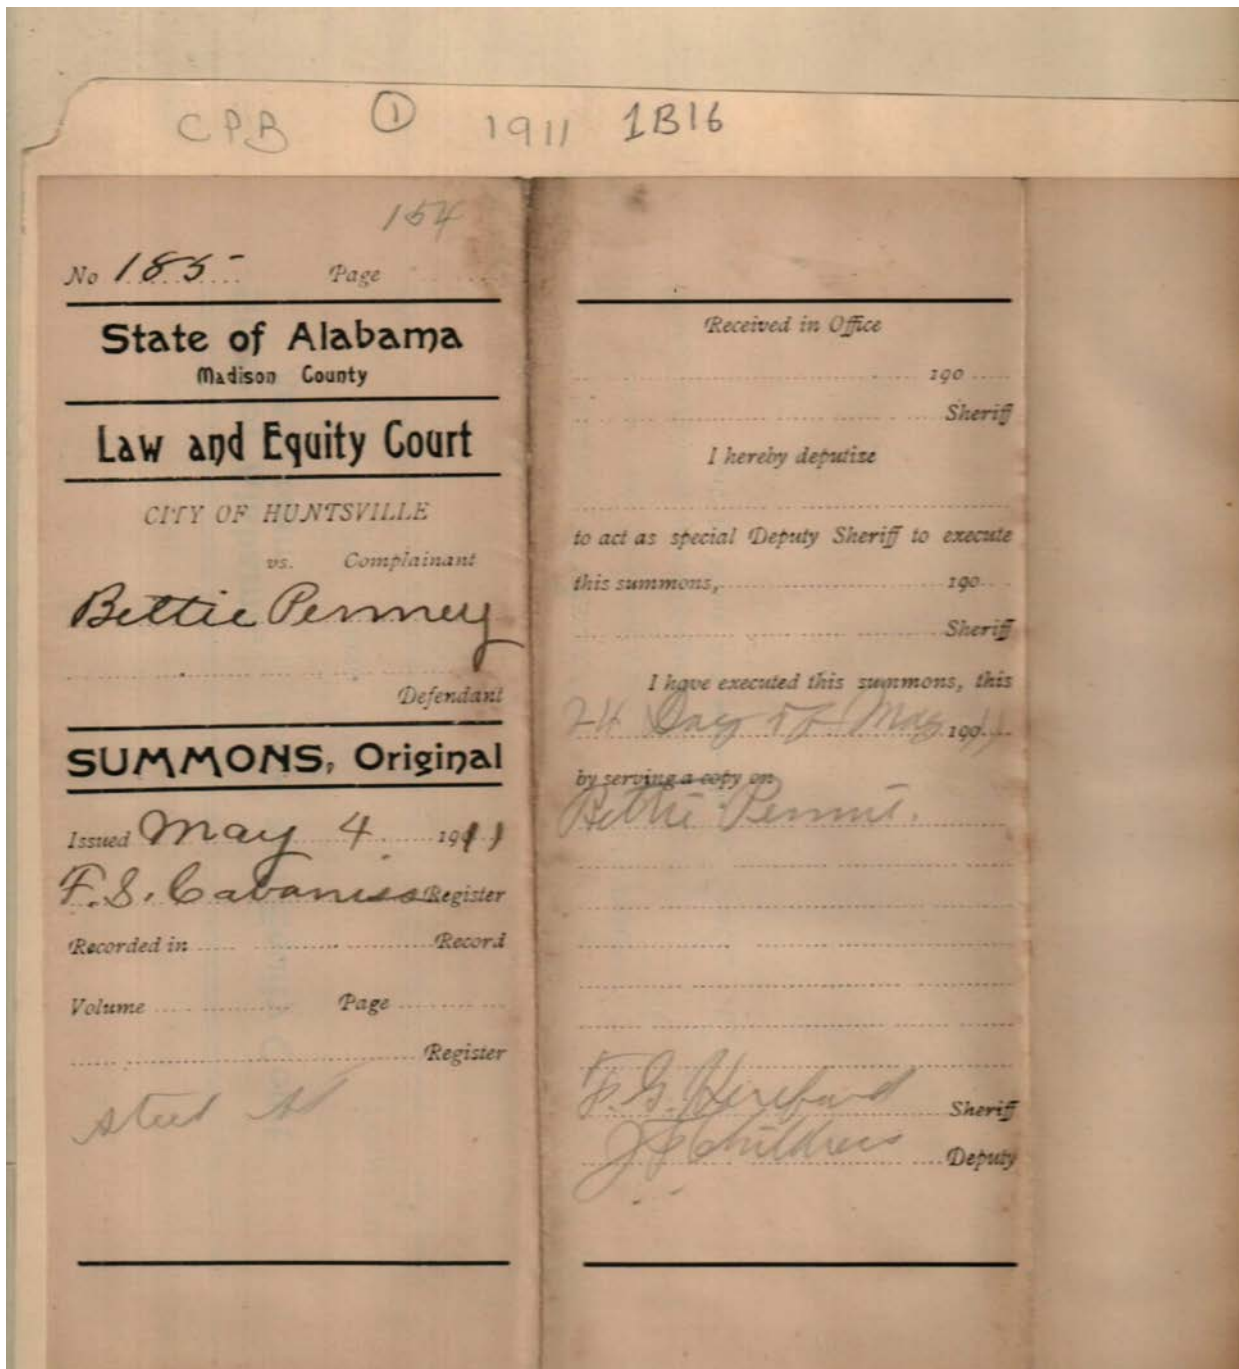 CPB ① 1911 1B16
154
No 185 Page
State of Alabama
Madison County
Law and Equity Court
CITY OF HUNTSVILLE
vs. Complainant
Bettie Penney
Defendant
SUMMONS, Original
Issued May 4 1911
F. S. Cabaniss Register
Recorded in Record
Volume Page
Register
Received in Office
190
Sheriff
I hereby deputize
to act as special Deputy Sheriff to execute
this summons, 190
Sheriff
I have executed this summons, this
24 Day of May 190 11
by serving a copy on
Bettie
F. G. Hereford Sheriff
Childress Deputy